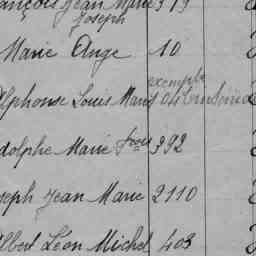 ançois Jean Marie 313
Joseph
Marie Ange 10
exempté
lphonse Louis Marie
dolphe Marie Frois 392
seph Jean Marie 2110
lbert Léon Michel 403